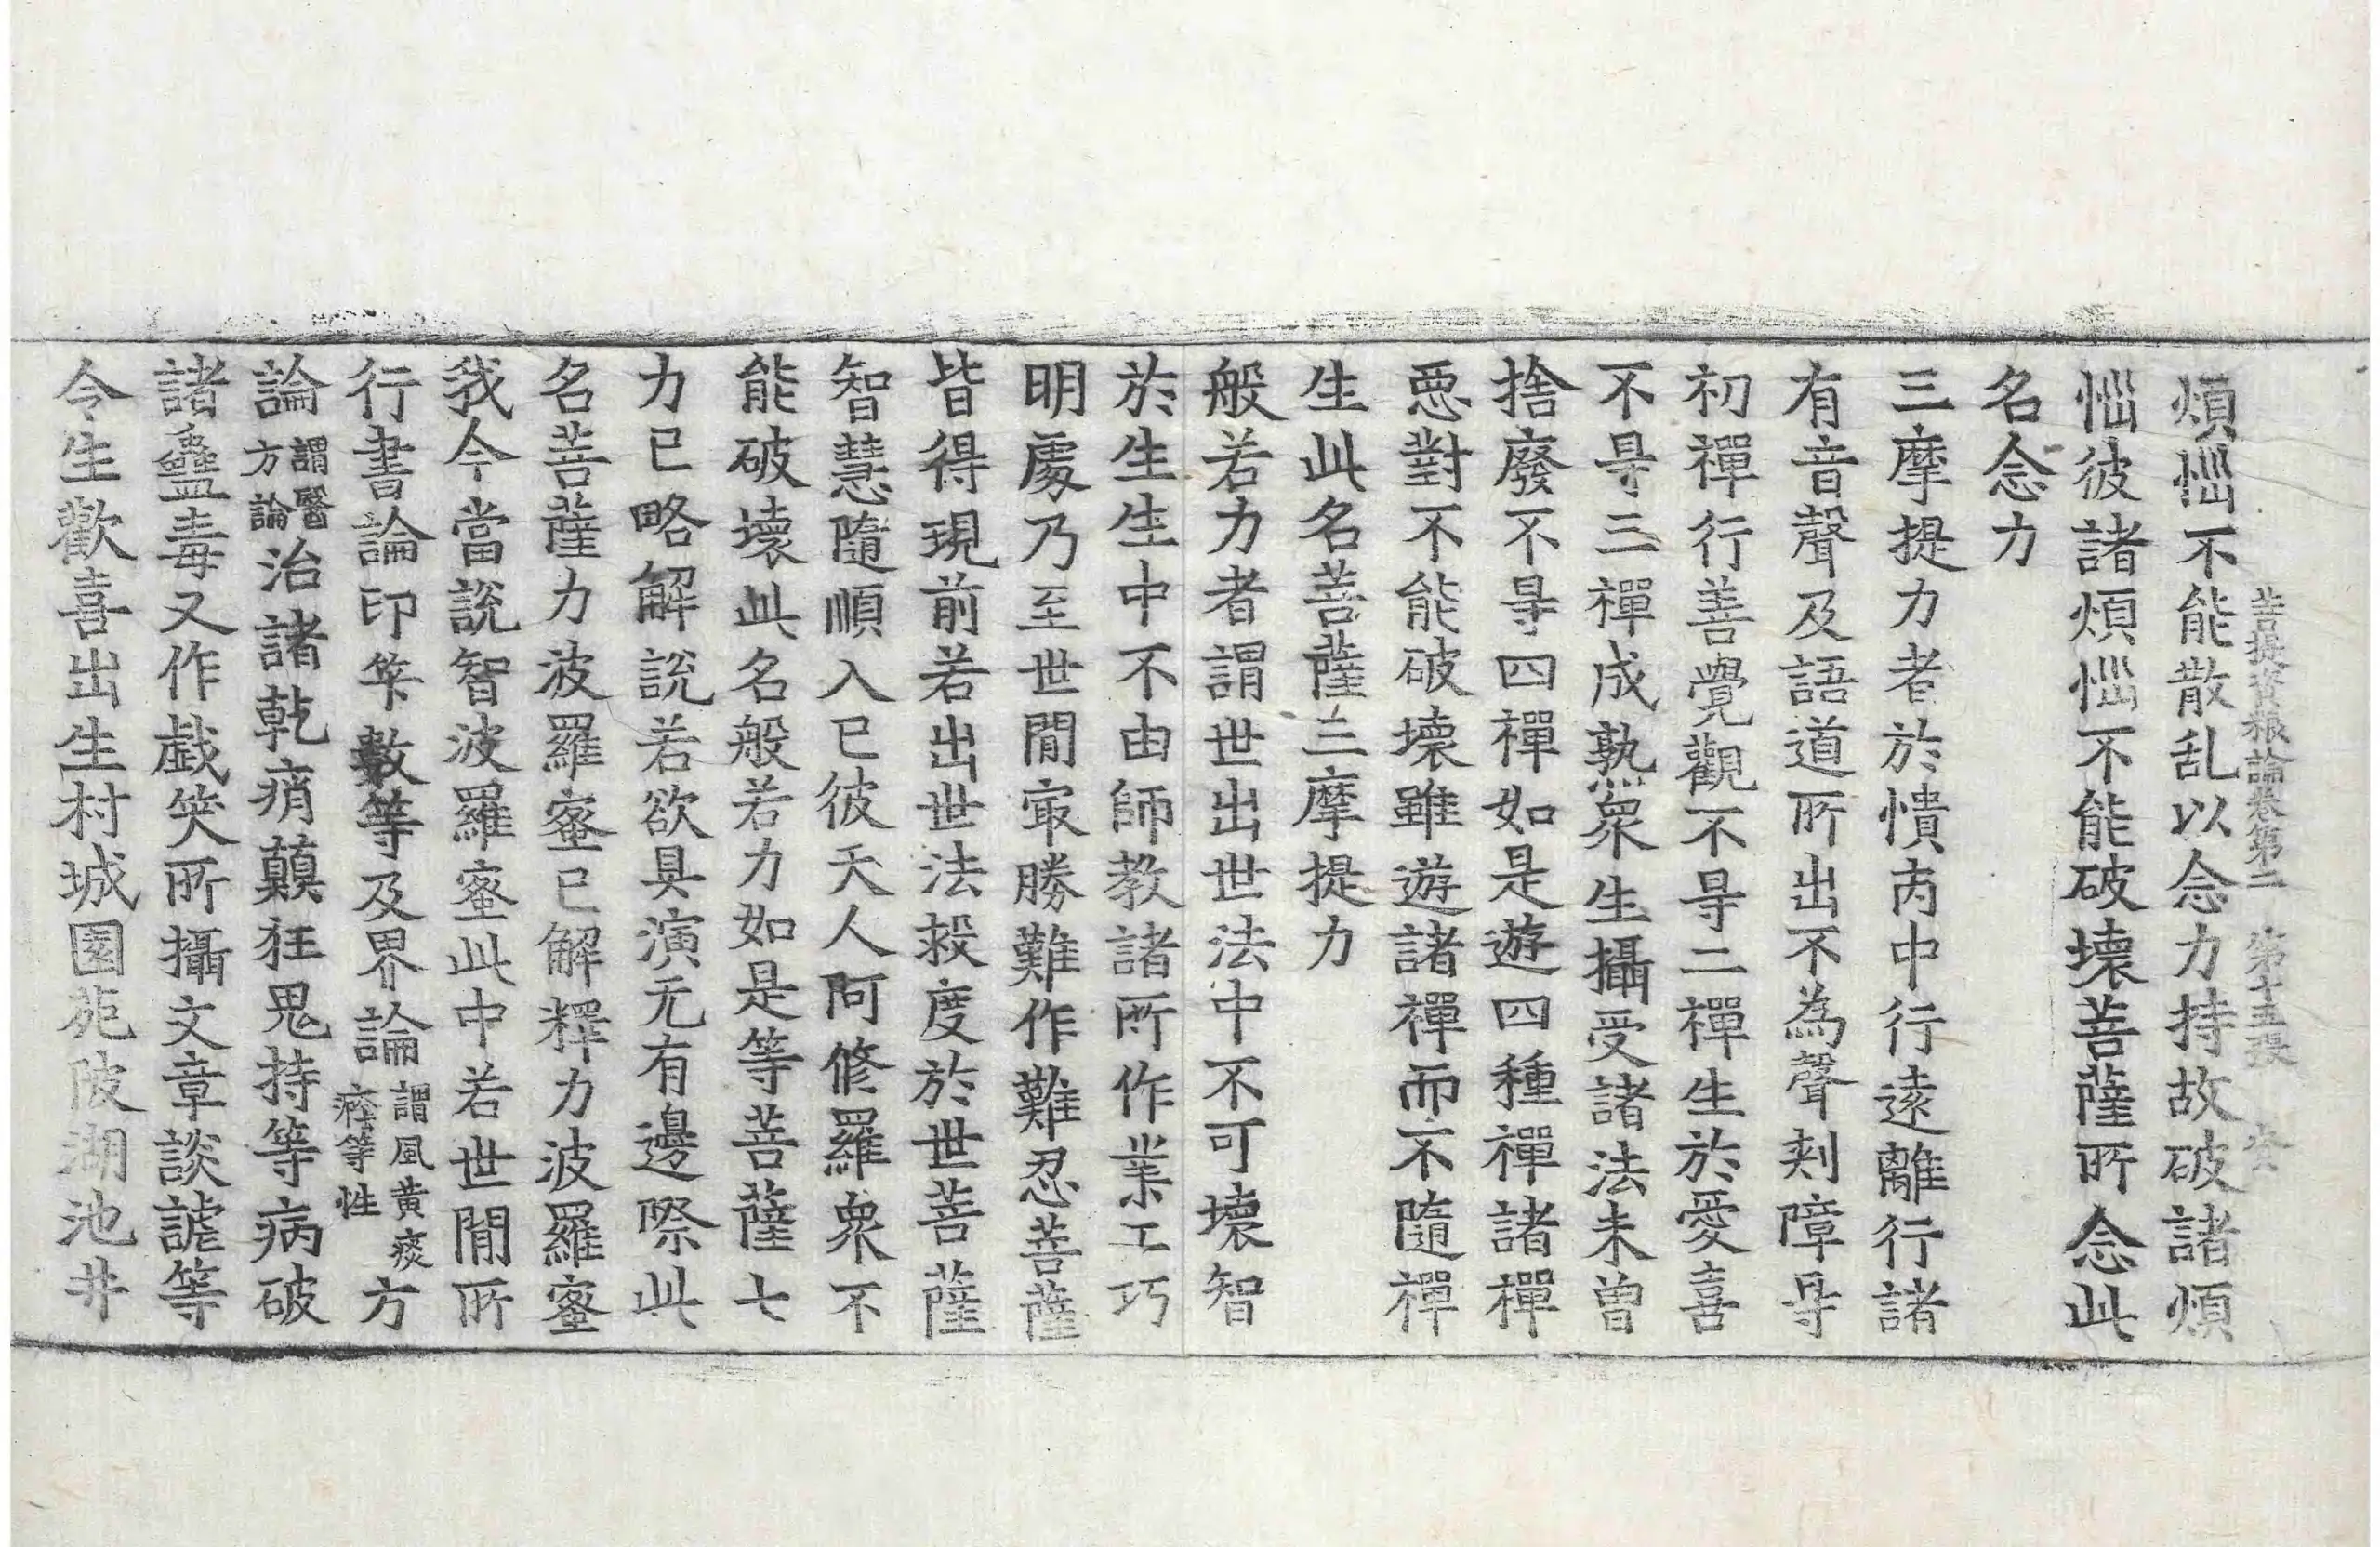 菩提資粮論卷第二　第十五張
煩惱不能散乱以念力持故破諸煩
惱彼諸煩惱不能破壞菩薩所念此
名念力
三摩提力者於憒丙中行遠離行諸
有音聲及語道所出不為聲刾障㝵
初禪行善覺觀不㝵二禪生於愛喜
不㝵三禪成熟衆生攝受諸法未曾
捨廢不㝵四禪如是遊四種禪諸禪
惡對不能破壞雖遊諸禪而不隨禪
生此名菩薩三摩提力
般若力者謂世出世法中不可壞智
於生生中不由師教諸所作業工巧
明處乃至世閒冣勝難作難忍菩薩
皆得現前若出世法救度於世菩薩
智慧隨順入已彼天人阿修羅衆不
能破壞此名般若力如是等菩薩七
力已略解說若欲具演无有邊際此
名菩薩力波羅蜜已解釋力波羅蜜
我今當說智波羅蜜此中若世閒所
行書論印筭數等及界論謂風黄痰癊等性方
論謂醫方論治諸乾痟顚狂鬼持等病破
諸蠱毒又作戱笑所攝文章談謔等
令生歡喜出生村城園苑陂湖池井